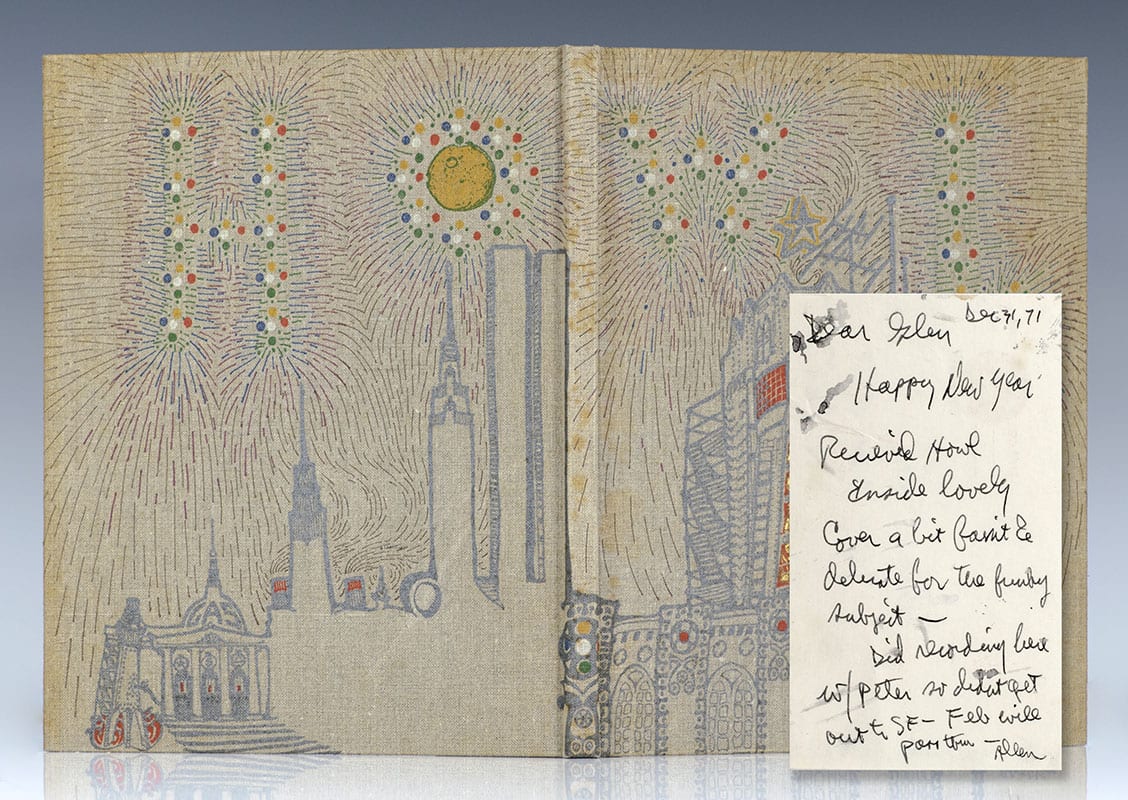 HOWL
Dec 31, 71
Dear Glen
Happy New Year
Received Howl
Inside lovely
Cover a bit faint &
delicate for the funky
subject —
Did recording here
w/ Peter so didnt get
out to SF — Feb will
— Allen